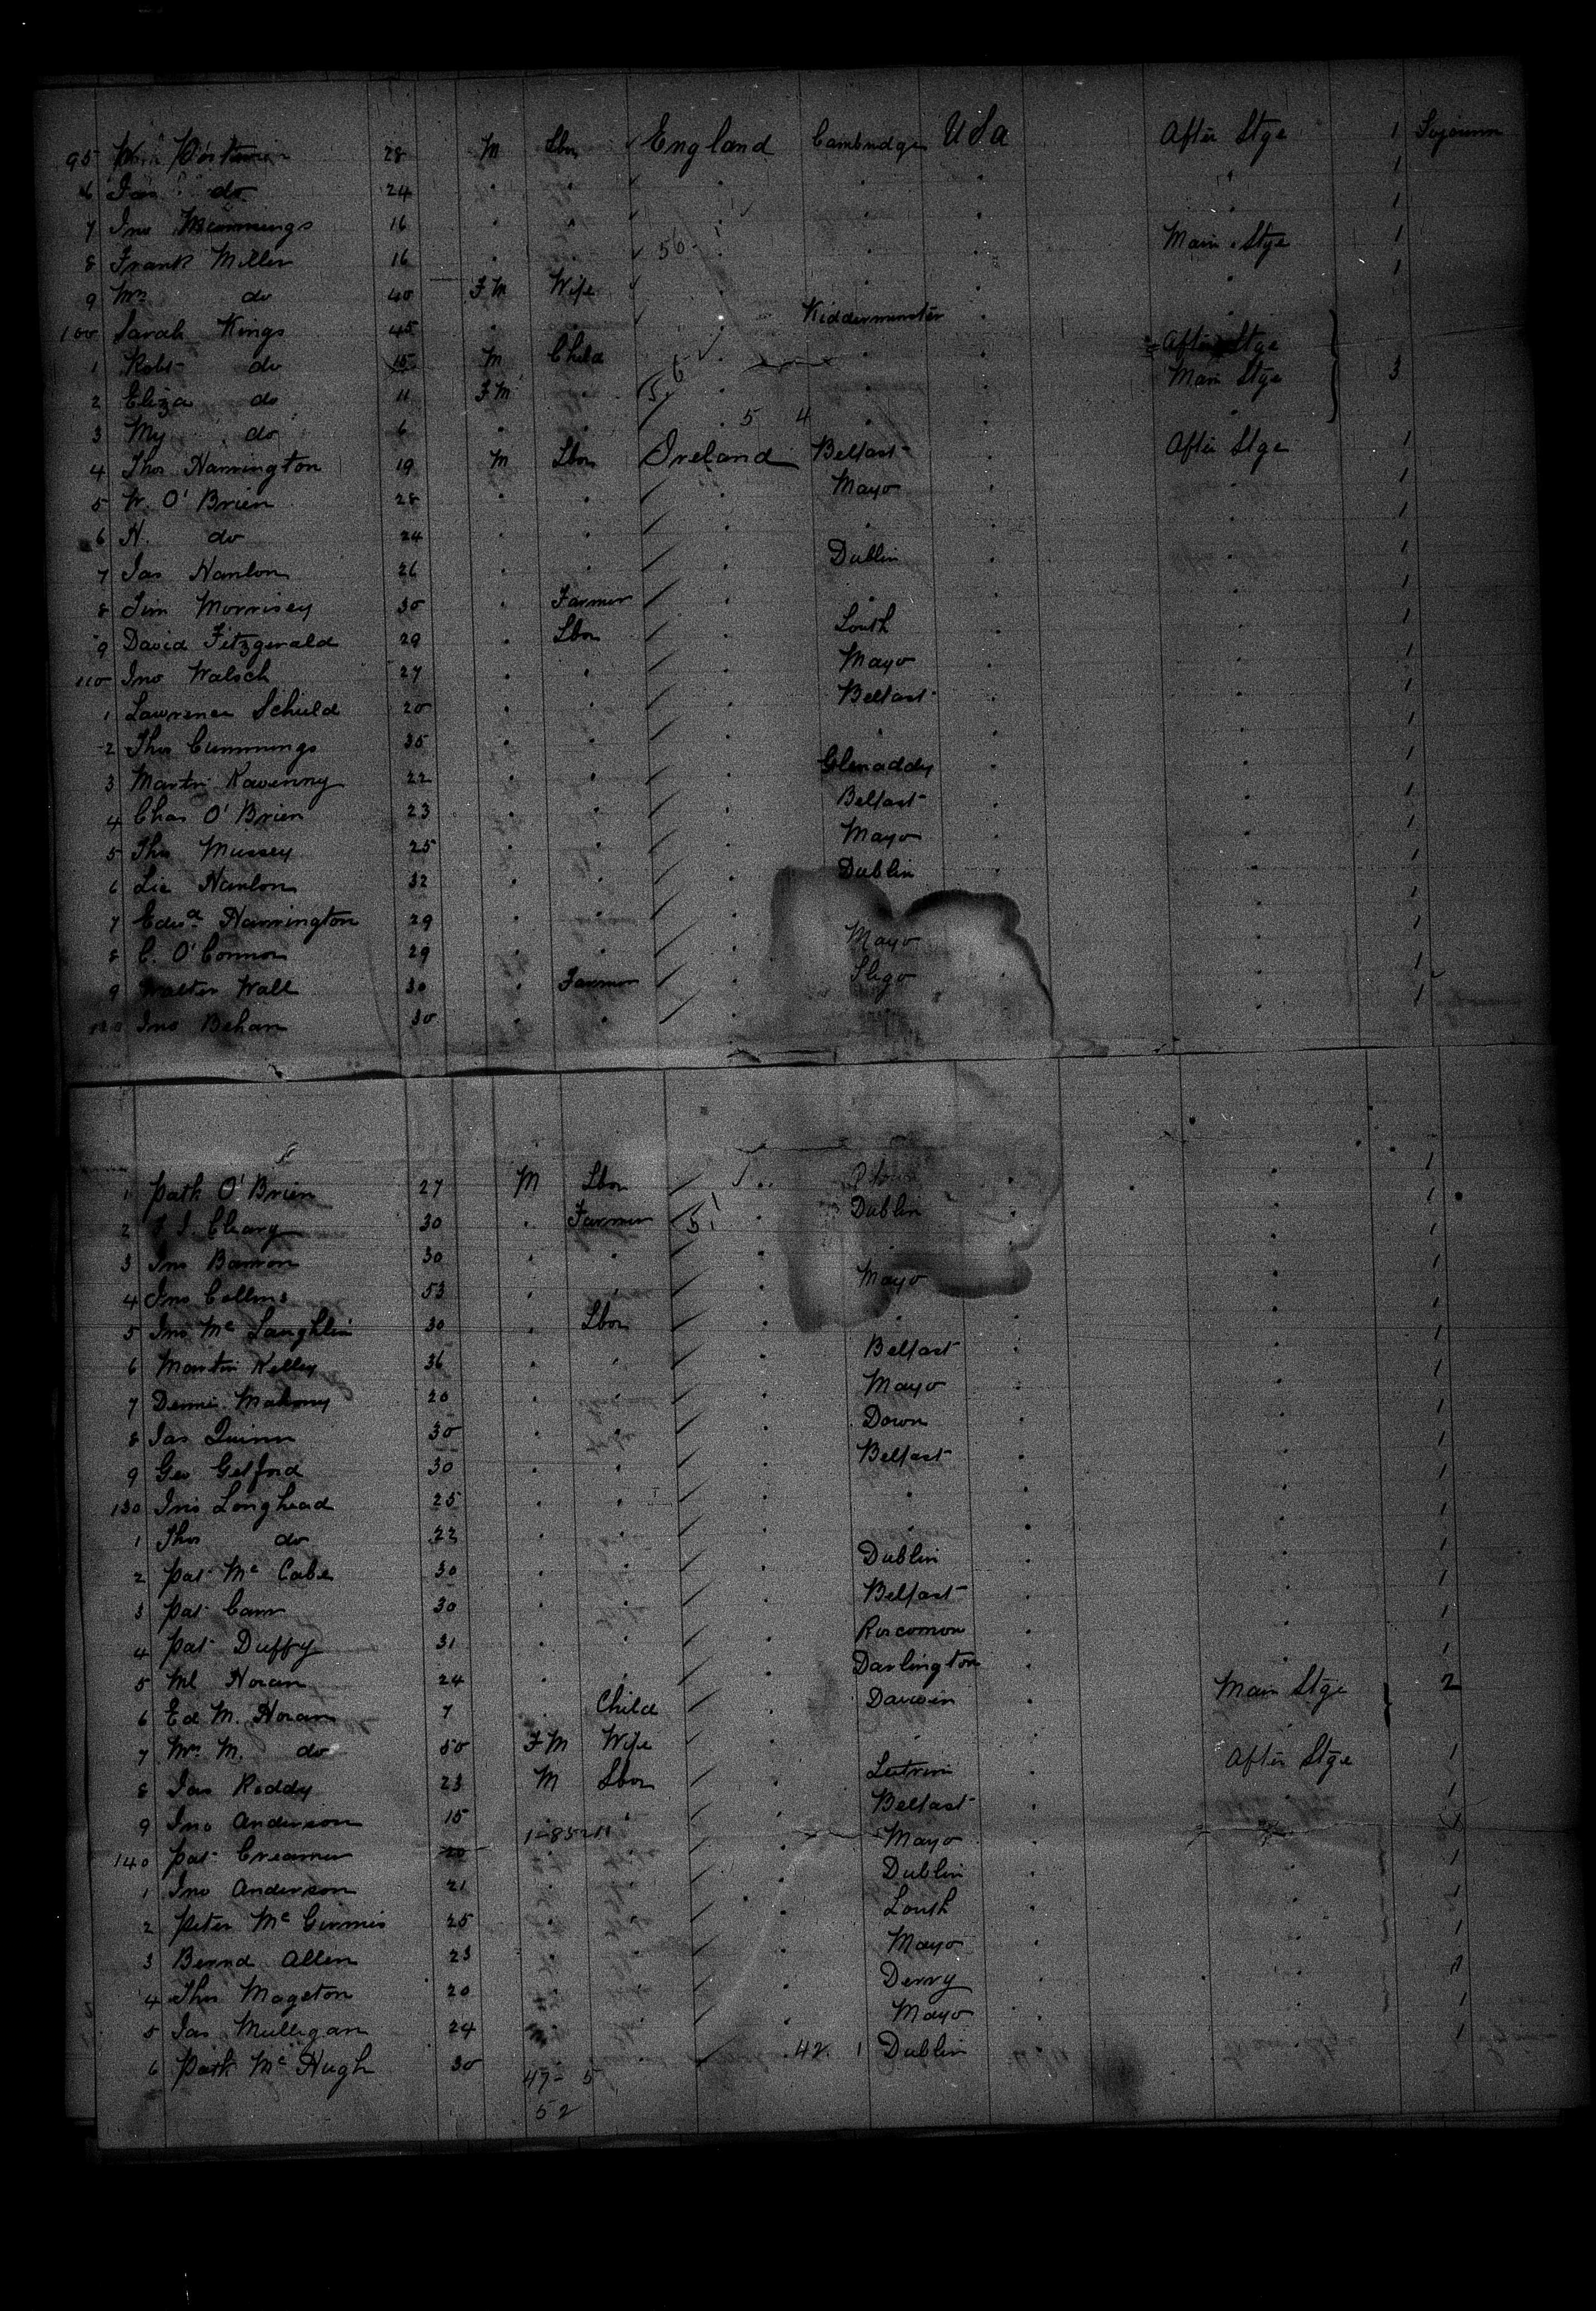 95 28 M Lbor England Cambridge USa After Stge 1 Sojourn
6 Jas do 24 " " " " " " 1
7 Jno 16 " " " " " 1
8 Frank Miller 16 " 56 " " Main Stge 1
9 Mrs do 40 FM Wife " " " " 1
100 Sarah Kings 45 " " " Kidderminster " "
1 Robt do 15 M Child " " " After Stge
2 Eliza do 11 FM " " " " Main Stge 3
3 My do 6 " " " 5 4 " " "
4 Thos Harrington 19 M Lbor Ireland Belfast " After Stge 1
5 W. O'Brien 28 " " " Mayo " " 1
6 H. do 24 " " " " " " 1
7 Jas Hanlon 26 " " " Dublin " " 1
8 Jim Morrisey 30 " Farmer " " " " 1
9 David Fitzgerald 29 " Lbor " Louth " " 1
110 Jno Walsch 27 " " " Mayo " " 1
1 Lawrence Schuld 20 " " " Belfast " " 1
2 Thos Cummings 35 " " " " " " 1
3 Martin Kavenny 22 " " " Glenaddy " " 1
4 Chas O'Brien 23 " " " Belfast " " 1
5 Tho Mussey 25 " " " Mayo " " 1
6 Hanlon 32 " " " Dublin " 1
7 Edwd Harrington 29 " " " " 1
8 C. O'Connor 29 " " " Mayo " 1
9 Walter Wall 30 " Farmer " Sligo " 1
120 Jno Behan 30 " " " 1
1 Patk O'Brien 27 M Lbor " " " 1
2 Cleary 30 " Farmer 5 " Dublin " " 1
3 Jno Barron 30 " " " " 1
4 Jno Collins 53 " " " Mayo " 1
5 Jno McLaughlin 30 " Lbor " " " " 1
6 Martin Kelley 36 " " " Belfast " " 1
7 Dennis Mahony 20 " " " Mayo " " 1
8 Jas Quinn 30 " " " Down " " 1
9 Geo Gelford 30 " " " Belfast " " 1
130 Jno Longhead 25 " " " " " " 1
1 Thos do 22 " " " " " " 1
2 Pat McCabe 30 " " " Dublin " " 1
3 Pat Carr 30 " " " Belfast " " 1
4 Pat Duffy 31 " " " Roscomon " " 1
5 Ml Horan 24 " " " Darlington " " 1
6 Ed M. Horan 7 " Child " " Main Stge 2
7 Mrs M. do 50 FM Wife " " "
8 Jas Reddy 23 M Lbor " Leitrim After Stge 1
9 Jno Anderson 15 " " " Belfast " " 1
1-85211
140 Pat Creamer 20 " " " Mayo " " 1
1 Jno Anderson 21 " " " Dublin " " 1
2 Peter McGinnis 25 " " " Louth " " 1
3 Bernd Allen 23 " " " Mayo " 1
4 Thos Mageton 20 " " " Derry " " 1
5 Jas Mulligan 24 " " " Mayo " " 1
6 Patk McHugh 30 42 1 Dublin 1
47- 5
52